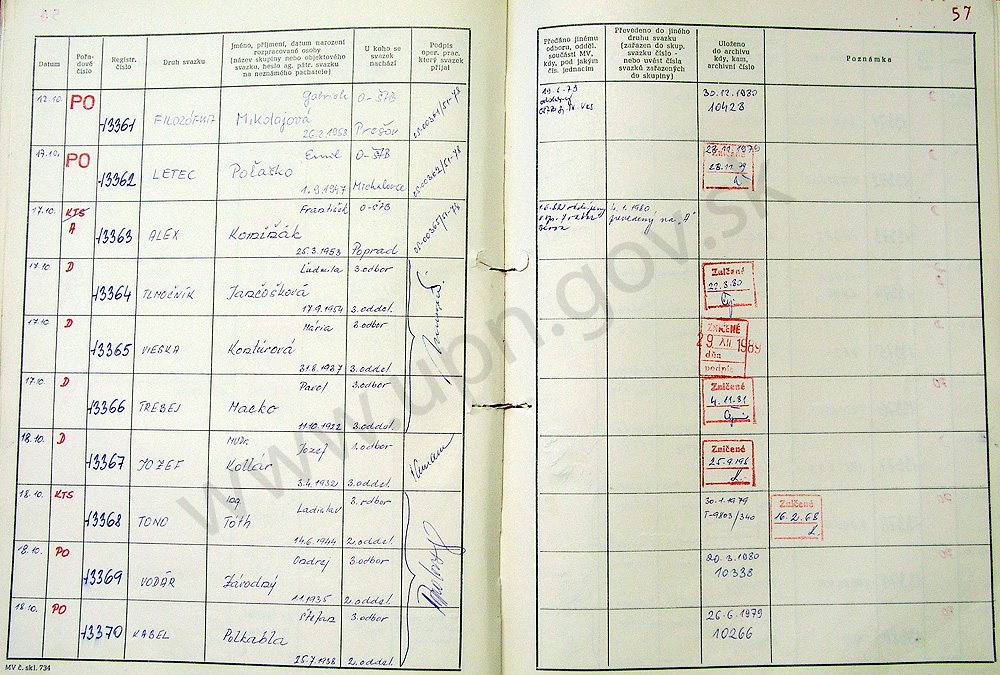 57
Datum
Pořadové číslo
Registr. číslo
Druh svazku
Jméno, příjmení, datum narození rozpracované osoby (název skupiny nebo objektového svazku, heslo ag. pátr. svazku na neznámého pachatele)
U koho se svazek nachází
Podpis oper. prac. který svazek přijal
Předáno jinému odboru, odděl. součásti MV, kdy, pod jakým čís. jednacím
Převedeno do jiného druhu svazku (zařazen do skup. svazku číslo - nebo uvést čísla svazků zařazených do skupiny)
Uloženo do archivu kdy, kam, archivní číslo
Poznámka
12.10. PO 13361 Mikolajová 26.2.1958 O-ŠTB Prešov
19.6.79
30.12.1980 10428
17.10. PO 13362 LETEC Emil Poťažko 1.9.1947 O-ŠTB Michalovce
28.11.1979
28.11.79
17.10. KTS A 13363 ALEX František 25.3.1953 O-ŠTB Poprad
1.1980 prevedený na "A"
17.10. D 13364 TLMOČNÍK Ludmila Jančošková 17.9.1954 3.odbor 3.oddel.
Zničené 27.3.80
17.10. D 13365 VIESKA Mária Kontúrová 31.8.1937 2.odbor 3.oddel.
ZNIČENÉ 29. XII. 1989 dňa podpis
17.10. D 13366 TREBEJ Pavol Macko 11.10.1922 3.odbor 3.oddel.
Zničené 4.11.81
18.10. D 13367 JOZEF MUDr. Jozef Kollár 3.4.1932 1.odbor 3.oddel.
Zničené
18.10. KTS 13368 TONO Ing. Ladislav Tóth 14.6.1944 3.odbor 2.oddel.
30.1.1979 T-9803/340
Zničené 16.2.68
18.10. PO 13369 VODÁR Ondrej Závodný 1.1.1935 3.odbor 2.oddel.
20.3.1980 10338
18.10. PO 13370 KABEL Štefan Polkabla 25.7.1938 3.odbor 2.oddel.
26.6.1979 10266
MV č. skl. 734
www.upn.gov.sk